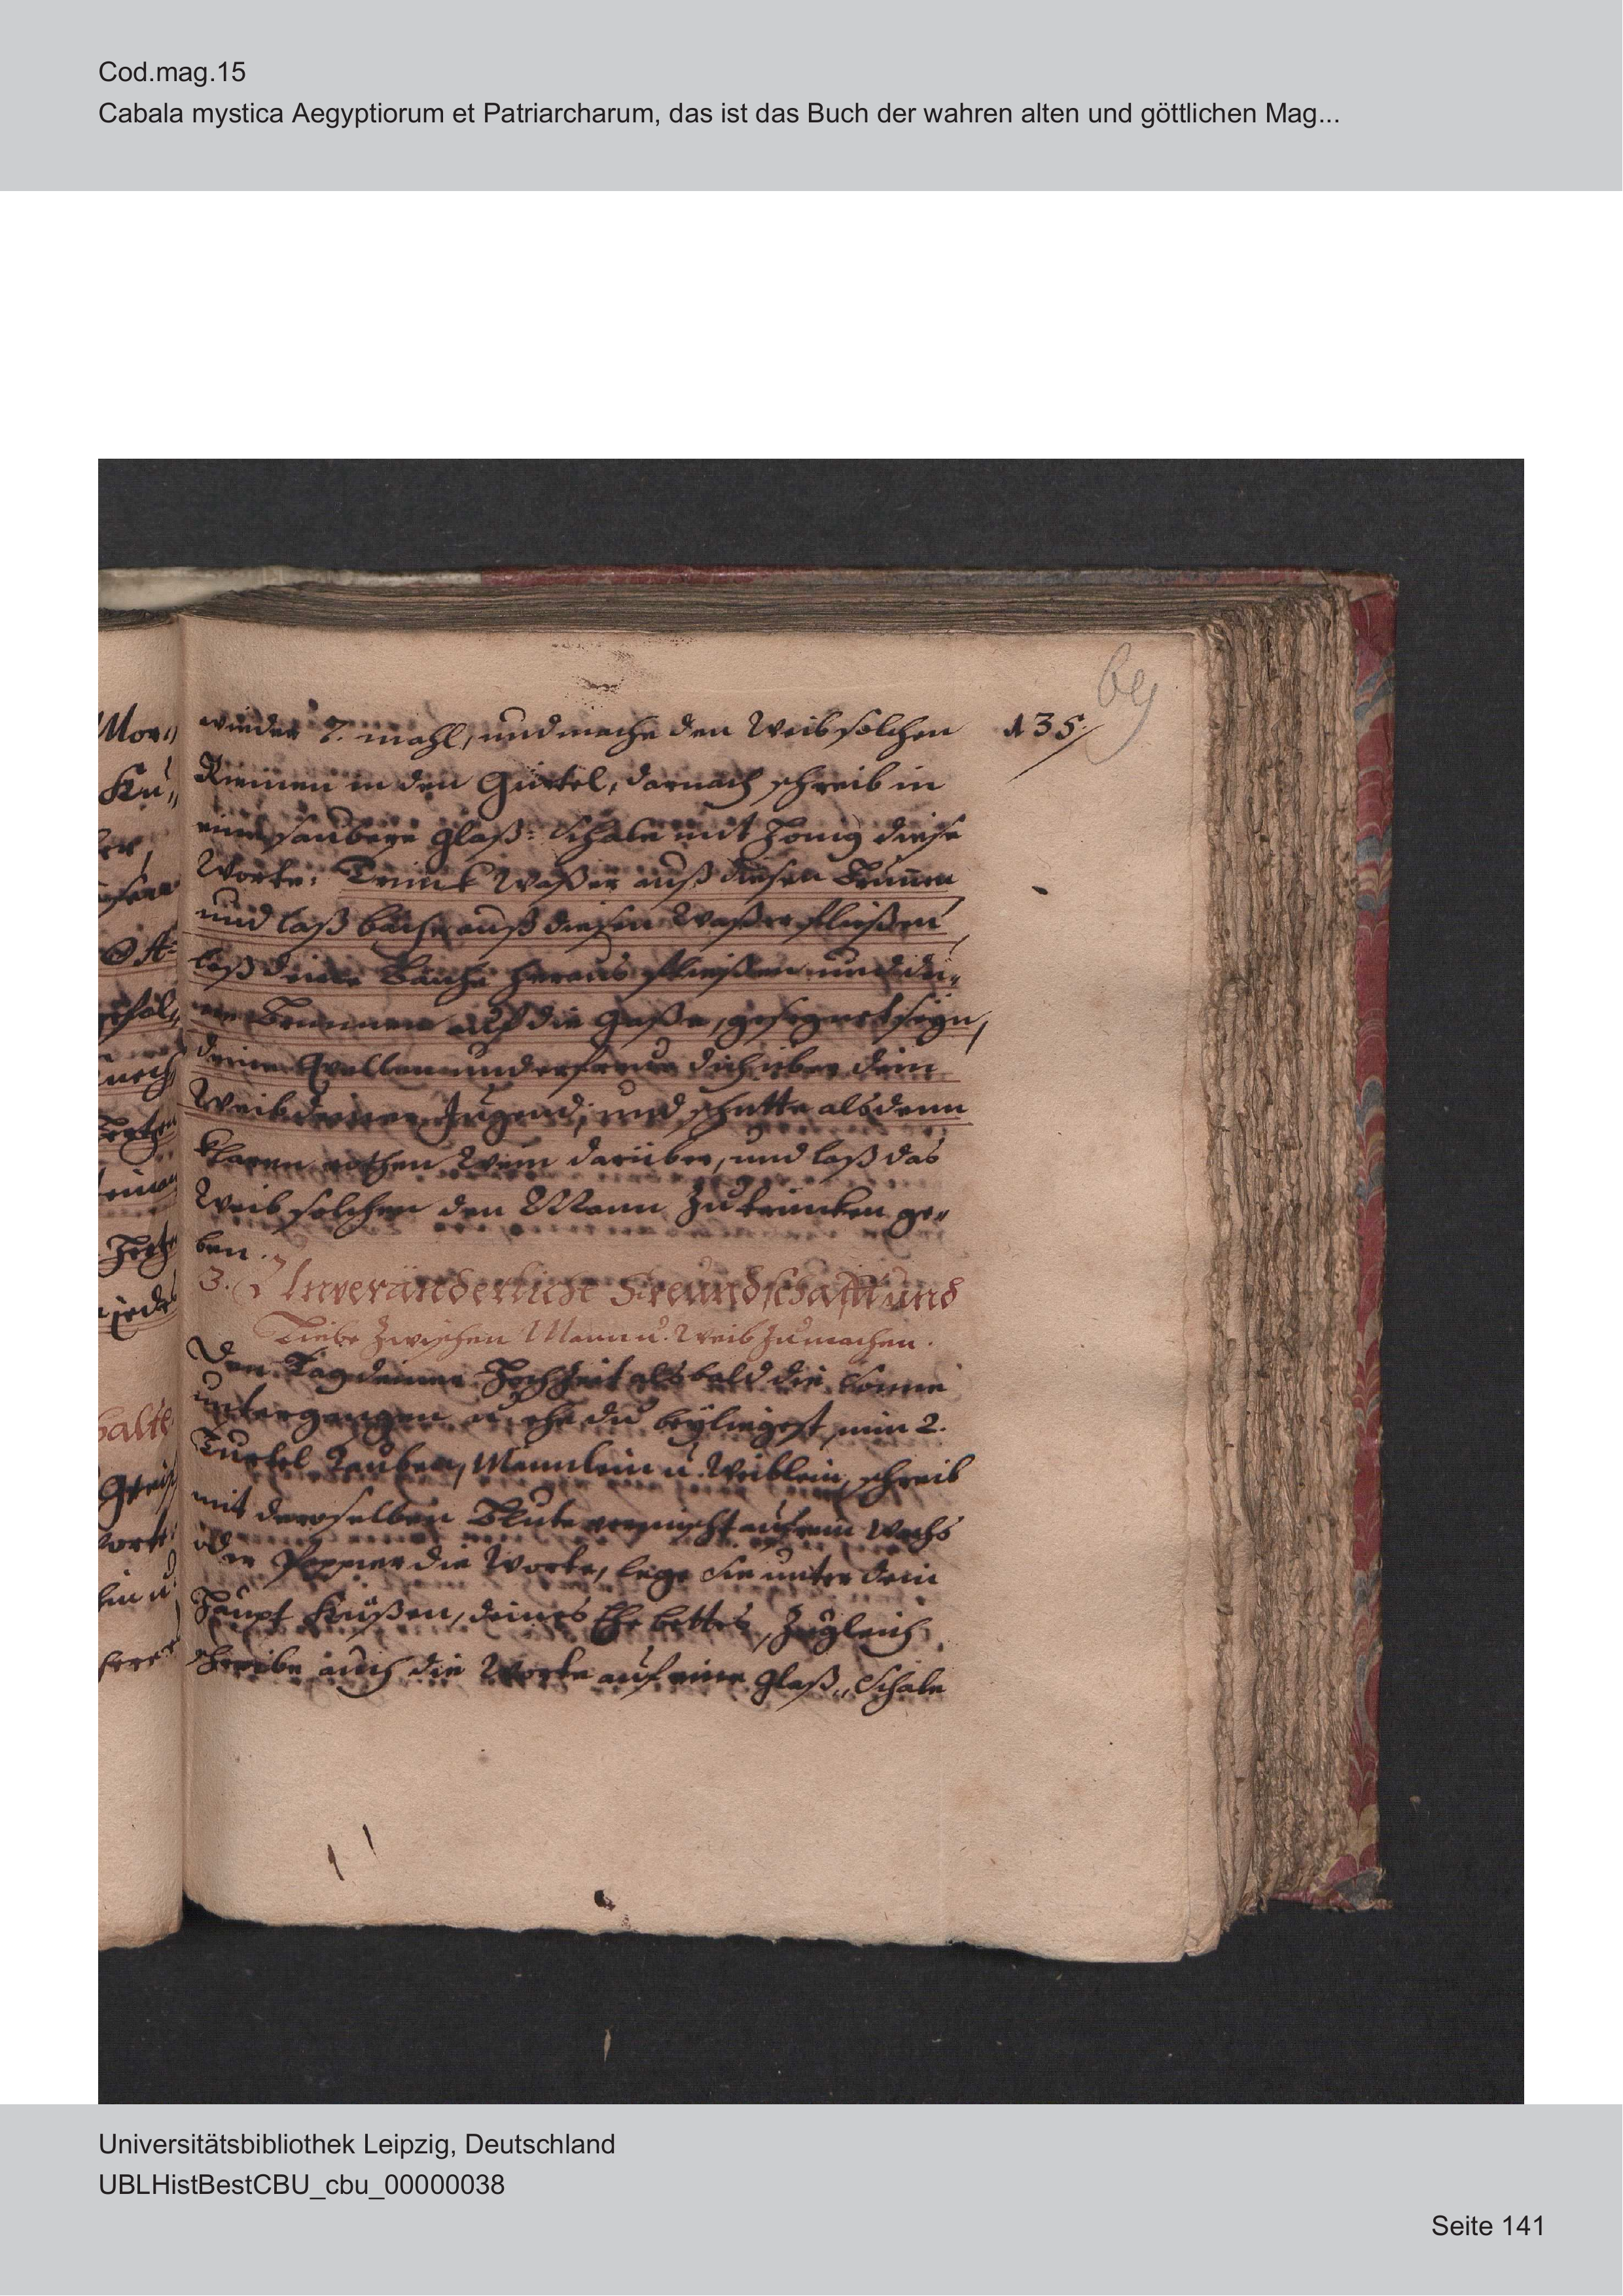 Cod.mag.15
Cabala mystica Aegyptiorum et Patriarcharum, das ist das Buch der wahren alten und göttlichen Mag...
69
135.
wieder 7. mahl, und mache den Weib solchen
Riemen in den Gürtel, darnach schreib in
eine saubere Glaß-Schale mit Honig diese
Worte: Trinck Waßer auß diesen Brunnen
und laß bäche auß diesen Waßer fließen,
laß deine Bäche heraus fließen und dei„
ne Brunnen auf die Gaße, gesegnet seyn,
deine Quellen und erfreue dich über dein
Weib deiner Jugend; und schütte alsdenn
klaren rothen Wein darüber, und laß das
Weib solchen den Mann zu trincken ge„
ben.
3. Unveränderliche Freundschafft und
Liebe zwischen Mann u. Weib zu machen.
Den Tag deiner Hochzeit alsbald die Sonne
untergangen u. ehe du beyliegest, nim 2.
Turtel Tauben, Männlein u. Weiblein, schreib
mit deroselben Blute vermischt auf ein Wachs
oder Pappier die Worte, lege sie unter dein
Haupt Küßen, deines Ehebettes, zugleich
schreibe auch die Worte auf eine Glaß„ Schale
Universitätsbibliothek Leipzig, Deutschland
UBLHistBestCBU_cbu_00000038
Seite 141